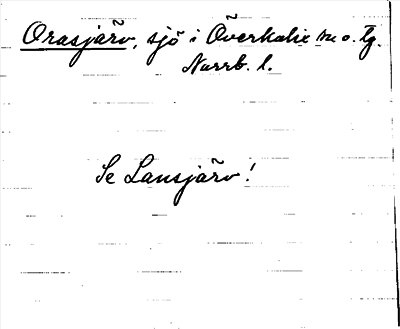 Orasjärv, sjö i Överkalix sn o. tg.
Norrb. l.
Se Lansjärv!